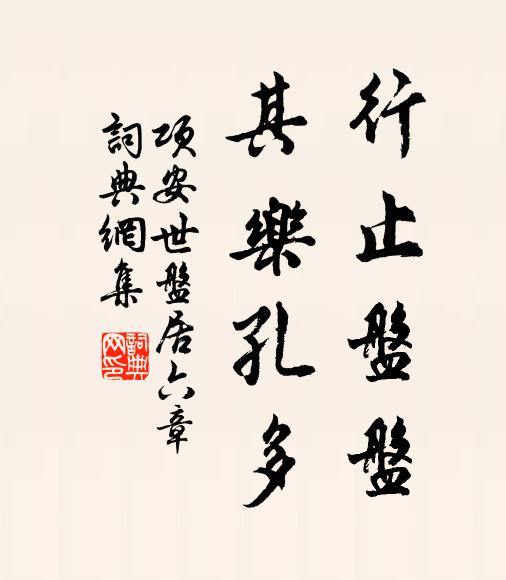 行止盤盤
其樂孔多
項安世盤居六章
詞典網集
詞典網印